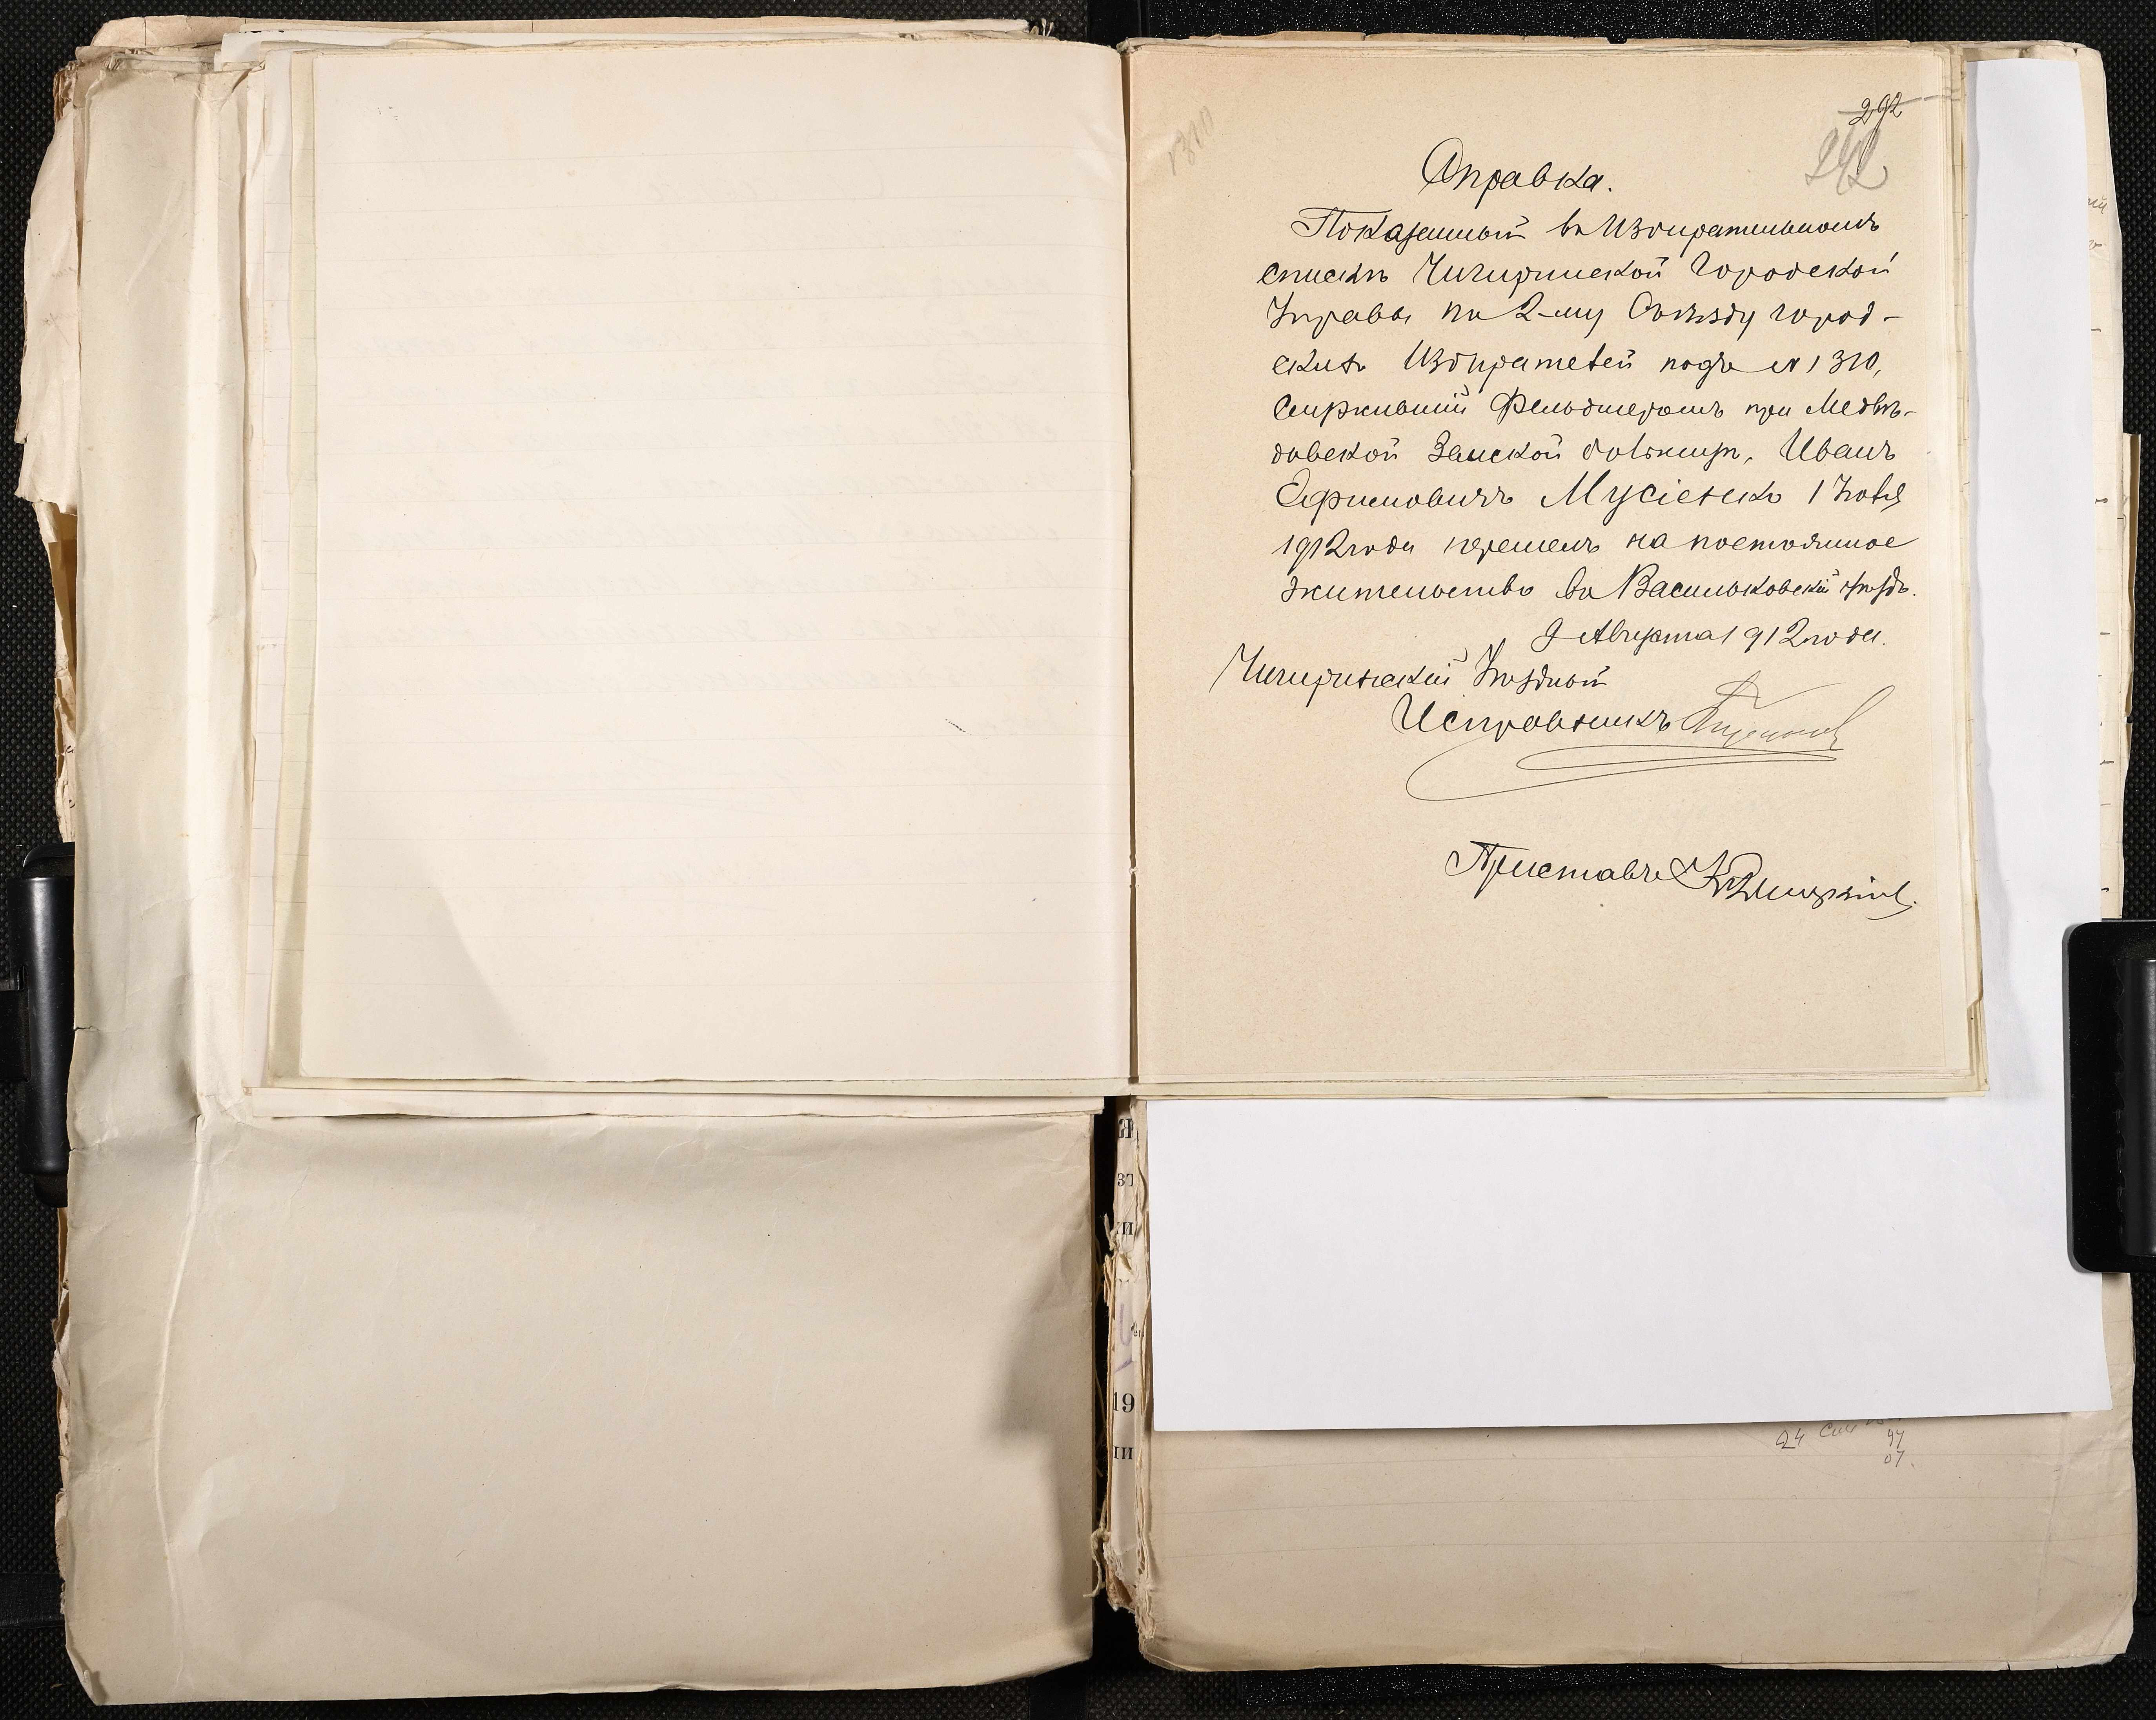 292
242
1310
Справка.
Показанный въ Избирательномъ
списки Чигиринской Городской
Управы по 2-му Съѣзду город-
скихъ Избирателей подъ № 1310,
Служившій Фельдшеромъ при Медвѣ-
довской Земской больницѣ, Иванъ
Ефимовичъ Мусіенко 1 Іюля
1912 года перешелъ на постоянное
жительство въ Васильковскій уѣздъ.
9 Августа 1912 года.
Чигиринскій Уѣздный
Исправникъ
Приставъ
19
24
97
07.